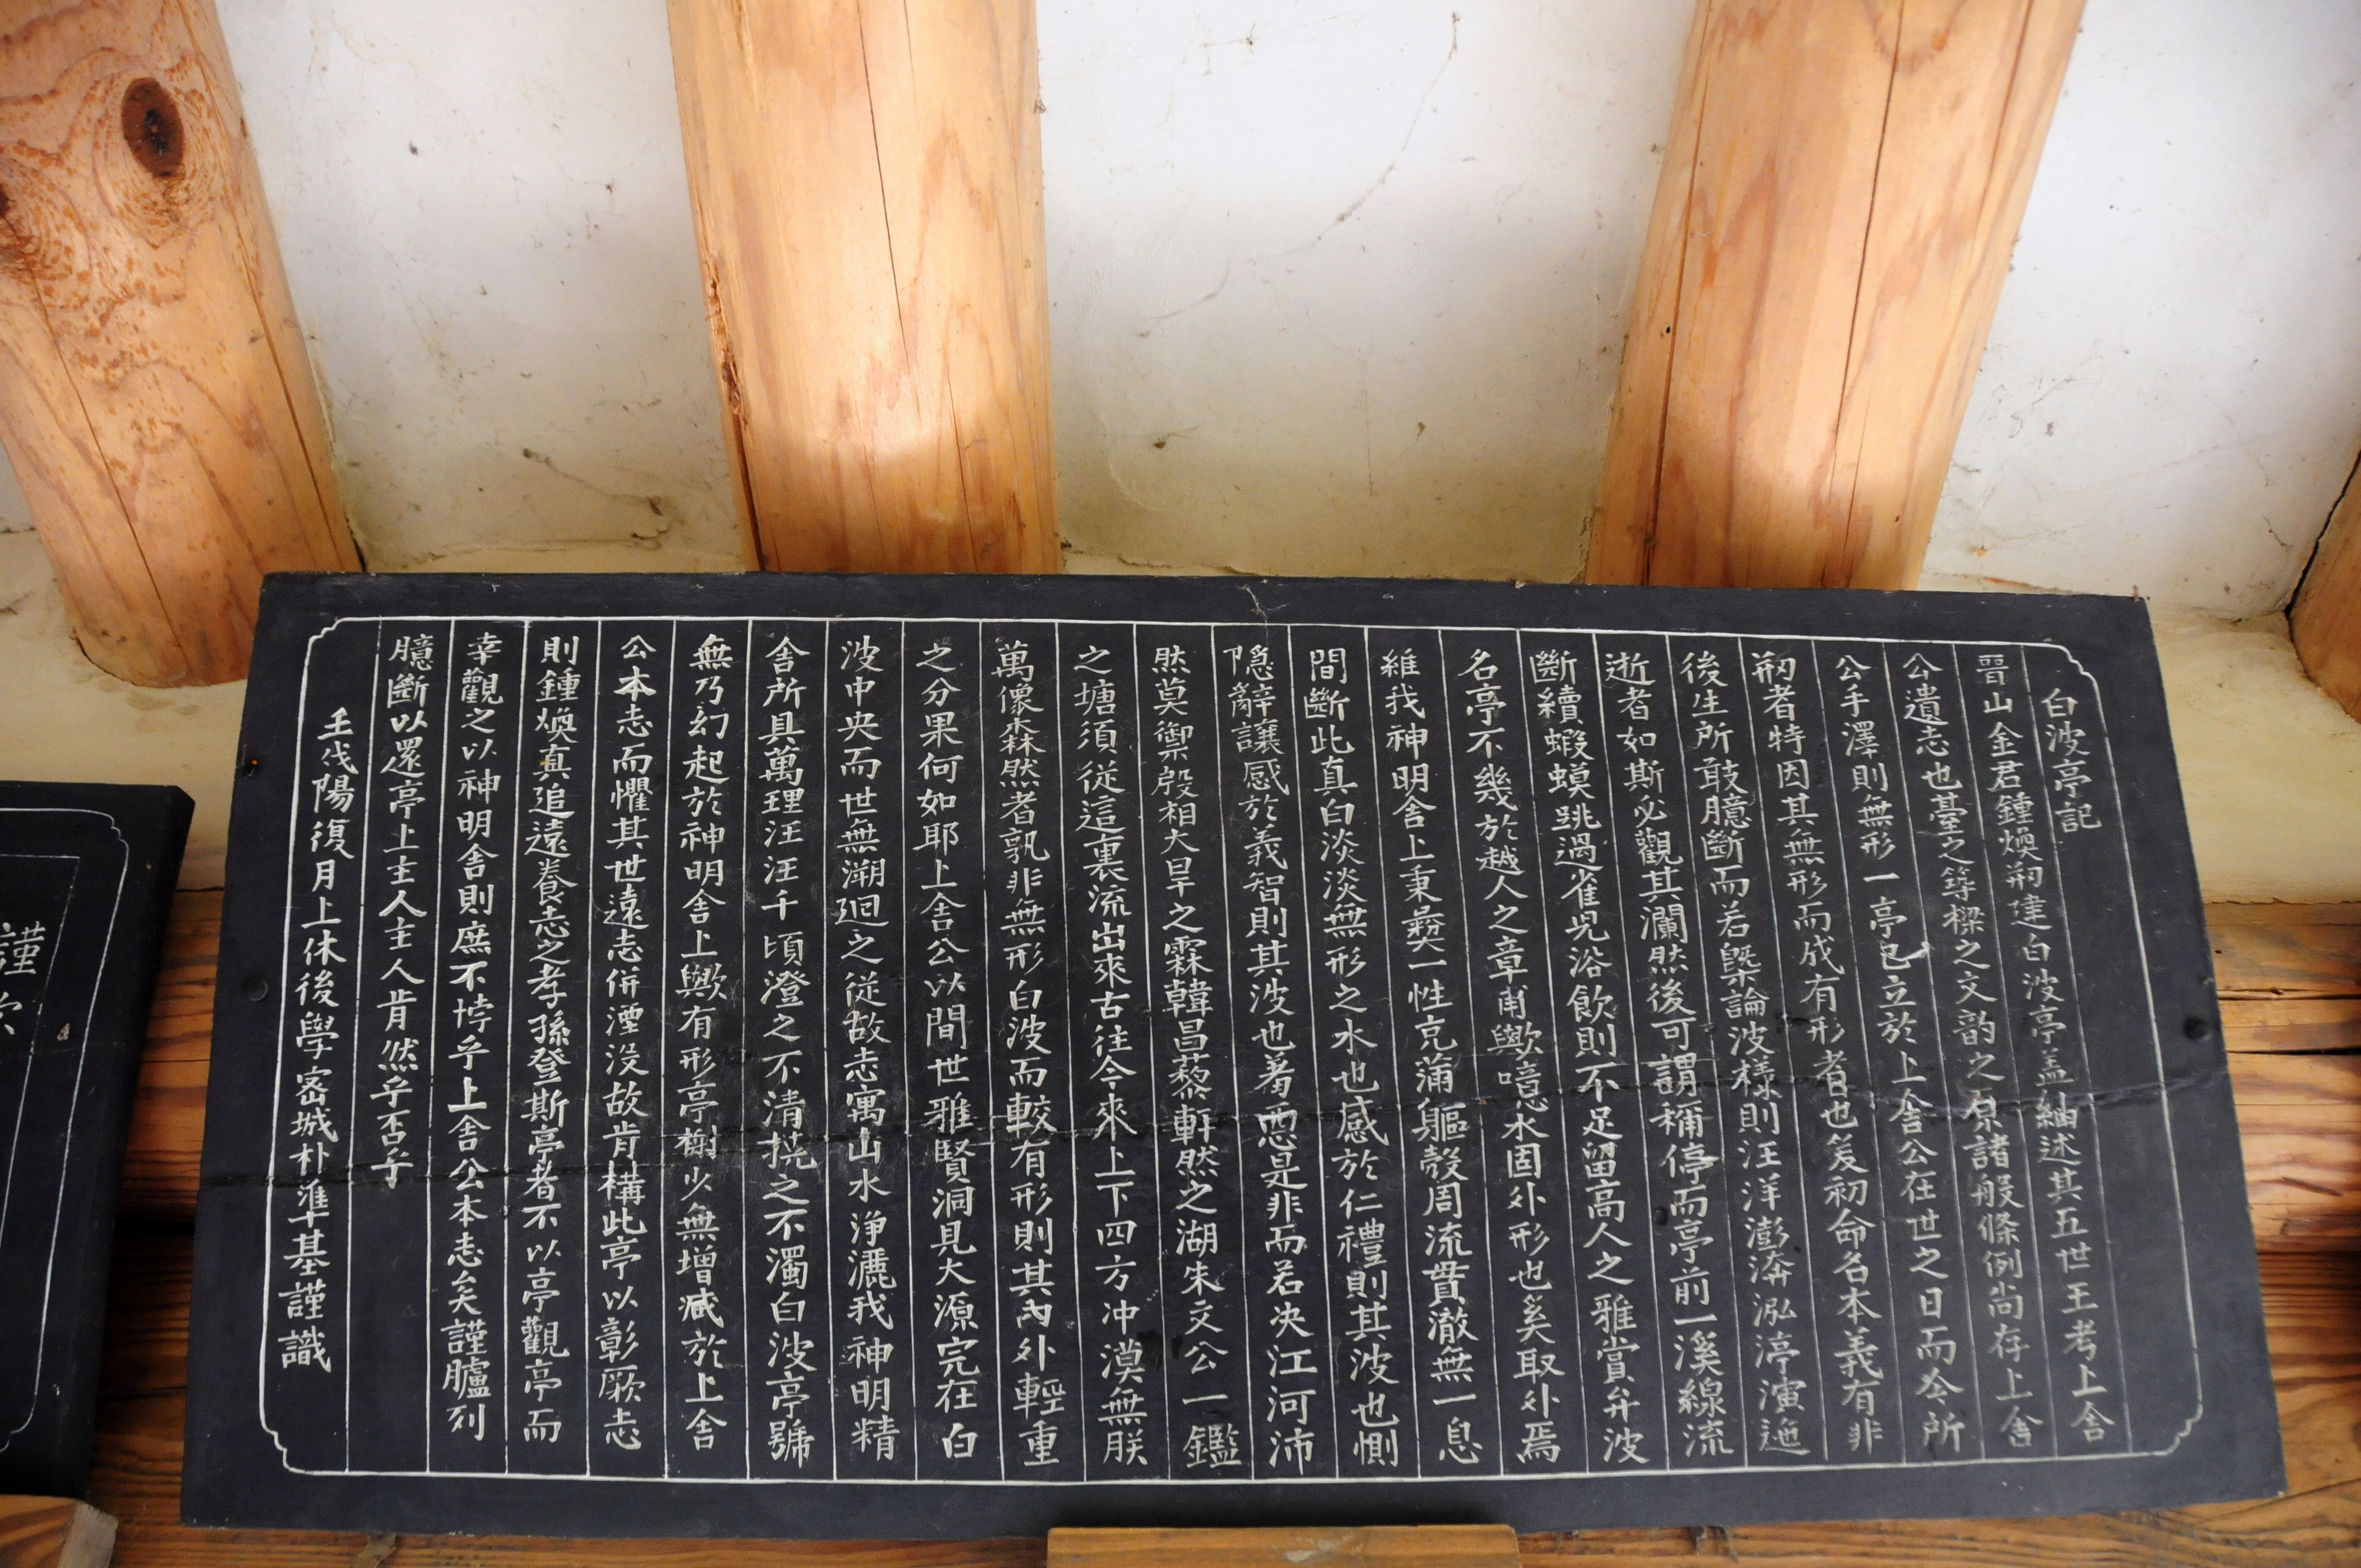 白波亭記
晋山金君鍾煥刱建白波亭盖紬述其五世王考上舍
公遺志也臺之等樑之文韵之原諸般條例尚存上舍
公手澤則無形一亭已立於上舍公在世之日而今所
刱者特因其無形而成有形者也爰初命名本義有非
後生所敢臆斷而若槩論波樣則汪洋澎湃泓渟演迤
逝者如斯必觀其瀾然後可謂稱停而亭前一溪線流
斷續蝦蟆跳過雀兒浴飮則不足留高人之雅賞弁波
名亭不幾於越人之章甫歟噫水固外形也奚取外焉
維我神明舍上秉彜一性充蒲軀殼周流貫澈無一息
間斷此真白淡淡無形之水也感於仁禮則其波也惻
隠辭讓感於義智則其波也羞惡是非而若决江河沛
然莫禦殷相大旱之霖韓昌藜軒然之湖朱文公一鑑
之塘須從這裏流出來古往今來上下四方冲漠無朕
萬像森然者孰非無形白波而較有形則其內外輕重
之分果何如耶上舍公以間世雅賢洞見大源完在白
波中央而世無溯廻之從故志寓山水浄灑我神明精
舍所具萬理汪汪千頃澄之不清撓之不濁白波亭號
無乃幻起於神明舍上歟有形亭榭少無增减於上舍
公本志而懼其世遠志併湮没故肯構此亭以彰厥志
則鍾煥真追遠養志之孝孫登斯亭者不以亭觀亭而
幸觀之以神明舍則庶不悖乎上舍公本志矣謹臚列
臆斷以還亭上主人主人肯然乎否乎
壬戌陽復月上休後學密城朴準基謹識
謹